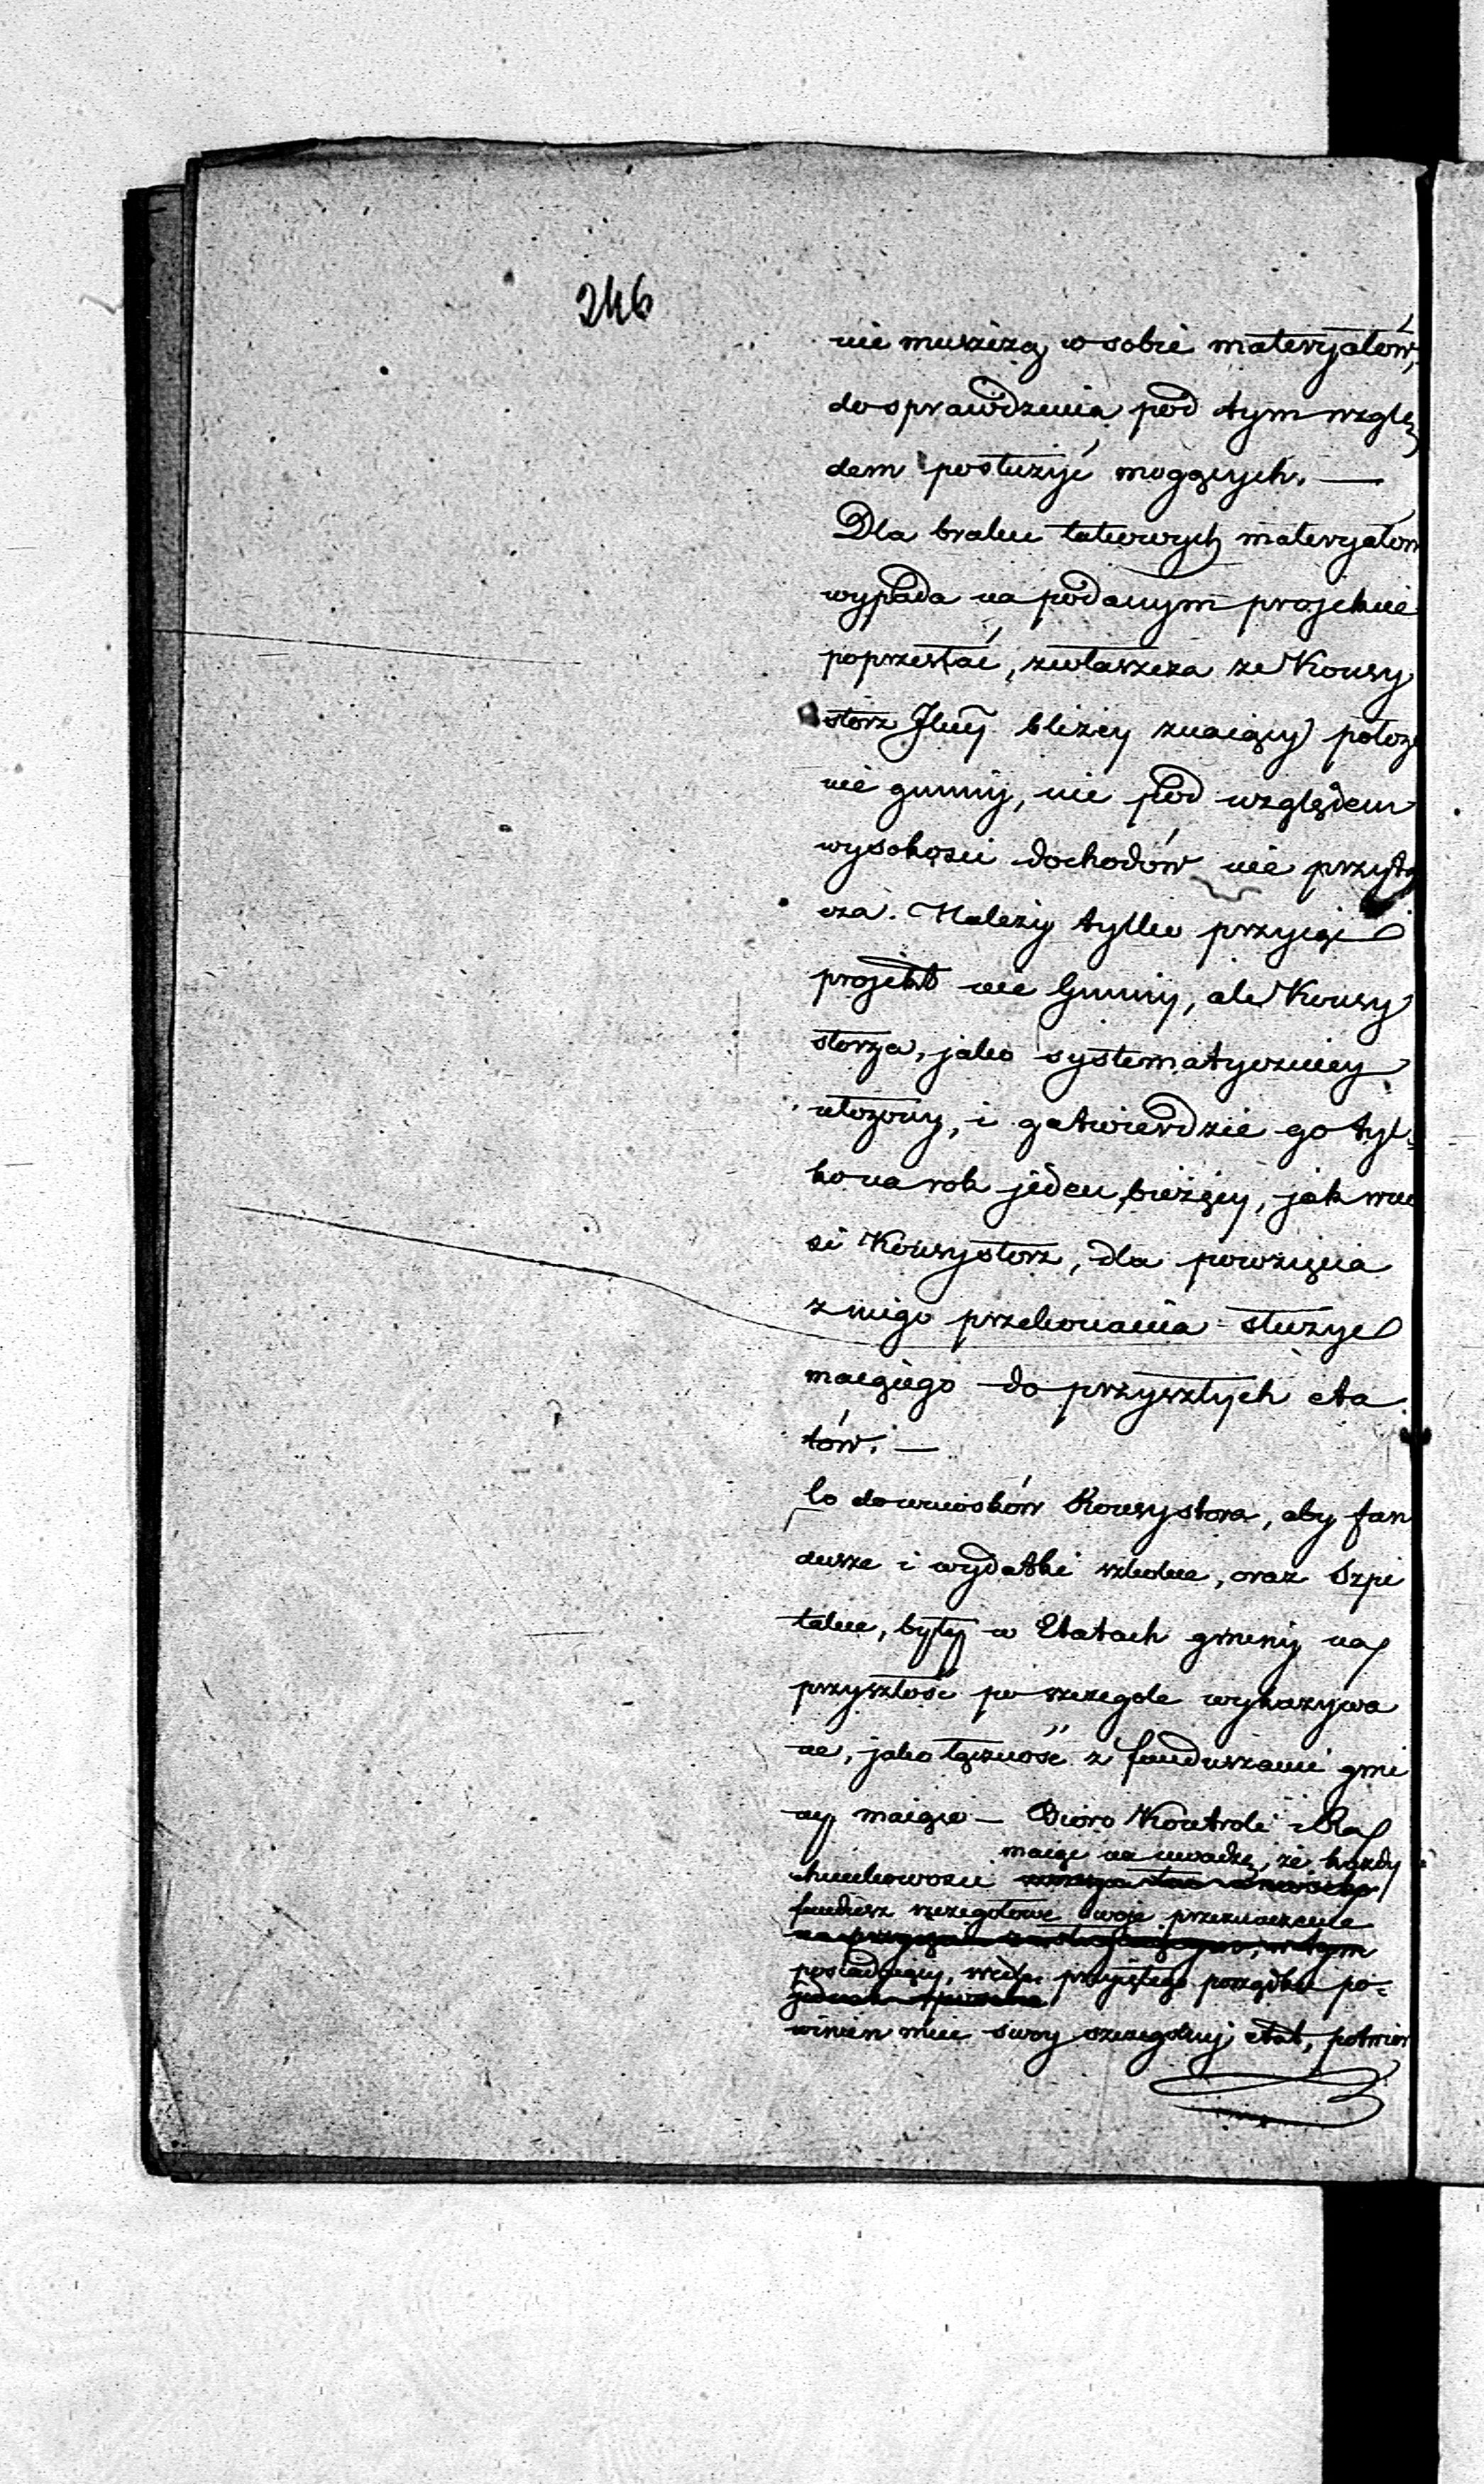 246
nie mieszczą w sobie materyałów,
do sprawdzenia pod tym wzglę
dem posłużyć mogących. —
Dla braku takowych materyałów
wypada na podanym projekcie
poprzestać, zwłaszcza że Konsy
storz bliżey znaiący położe
nie gminy, nic pod względem
wysokości dochodów nie przyta
cza. Należy tylko przyiąć
projekt nie Gminy, ale Konsy
storza, jako systematyczniey
ułożony, i zatwierdzić go tyl-
ko na rok jeden bieżący, jak wno
si Konsystorz, dla powzięcia
z niego przekonania służyć
maiącego do przyszłych eta
tów. —
Co do wniosków Konsystorza, aby fun
dusze i wydatki szkolne, oraz Szpi
talne, były w Etatach gminy na
przyszłość po szczegole wykazywa
ne, jako łączność z funduszami gmi
ny maiące — Bióro Kontroli i Ra
maiąc na uwadze, że każdy
chunkowości
fundusz szczegółowe swoje przeznaczenie
posiadaiący, wedle przyiętego porządku po-
winien mieć swoy szczególny etat, potwier